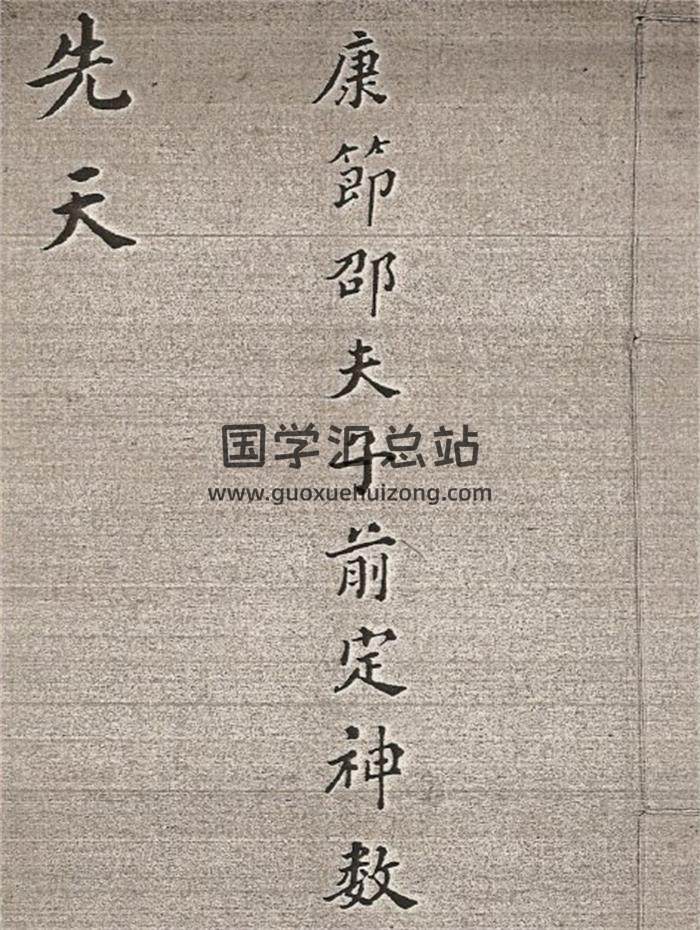 康節邵夫子前定神数
先天
国学汇总站
www.guoxuehuizong.com